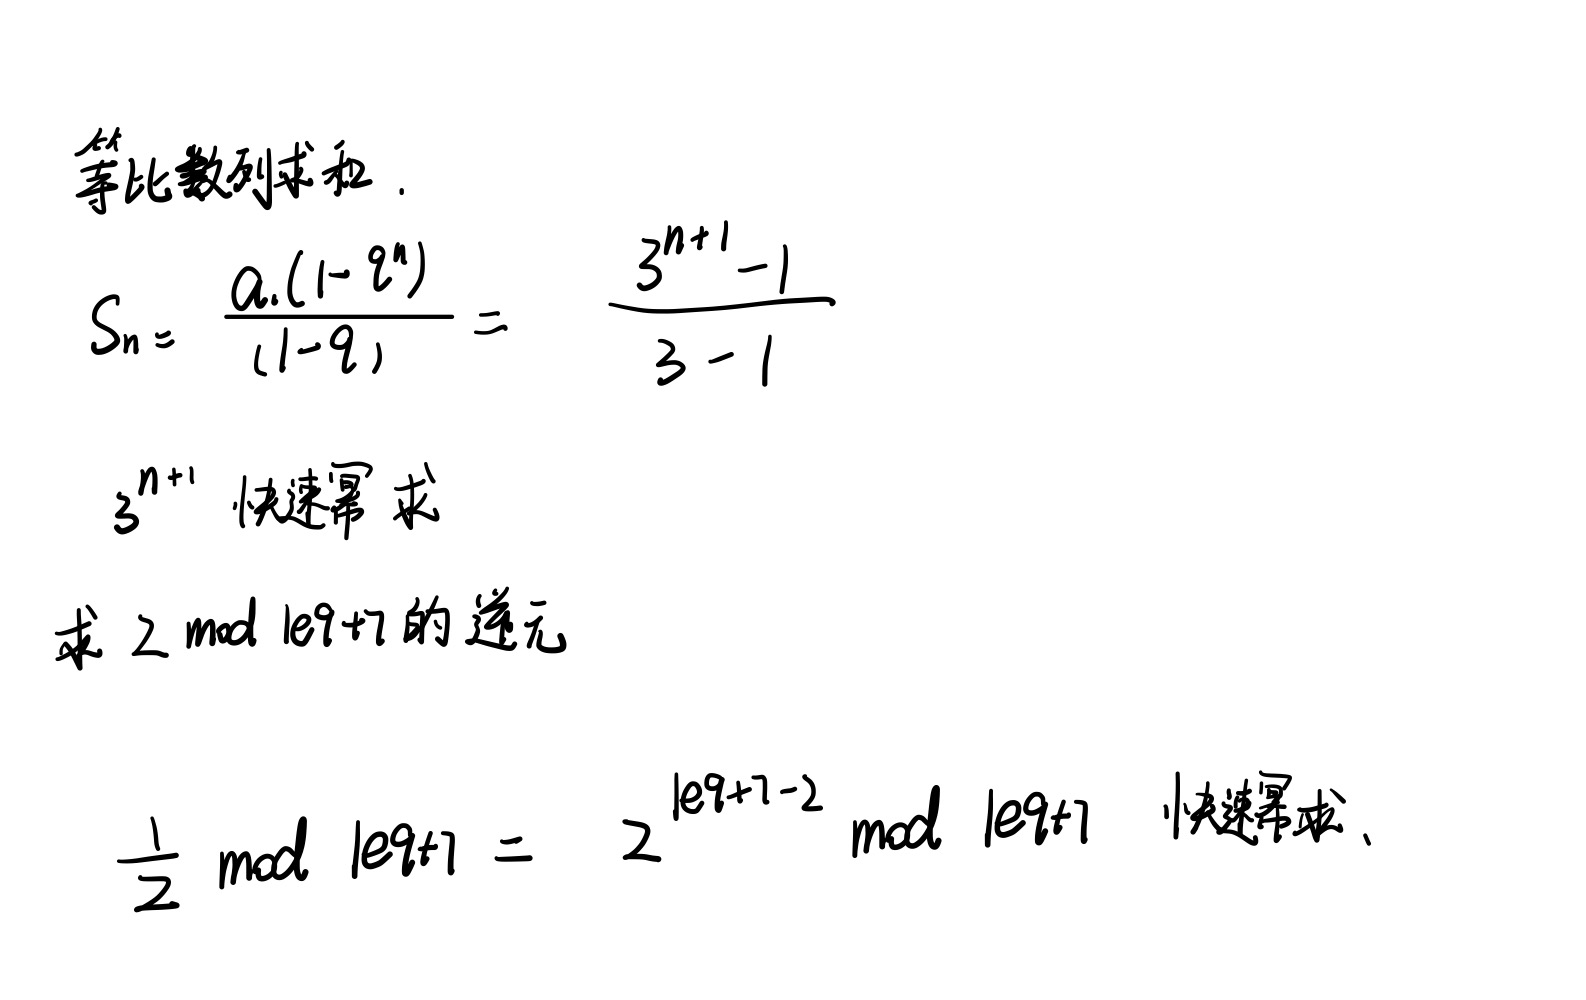 等比数列求和.
Sn = a₁(1-qⁿ) / (1-q) = 3ⁿ⁺¹-1 / 3-1
3ⁿ⁺¹ 快速幂 求
求 2 mod 1e9+7 的逆元
1/2 mod 1e9+7 = 2^(1e9+7-2) mod 1e9+7 快速幂求、